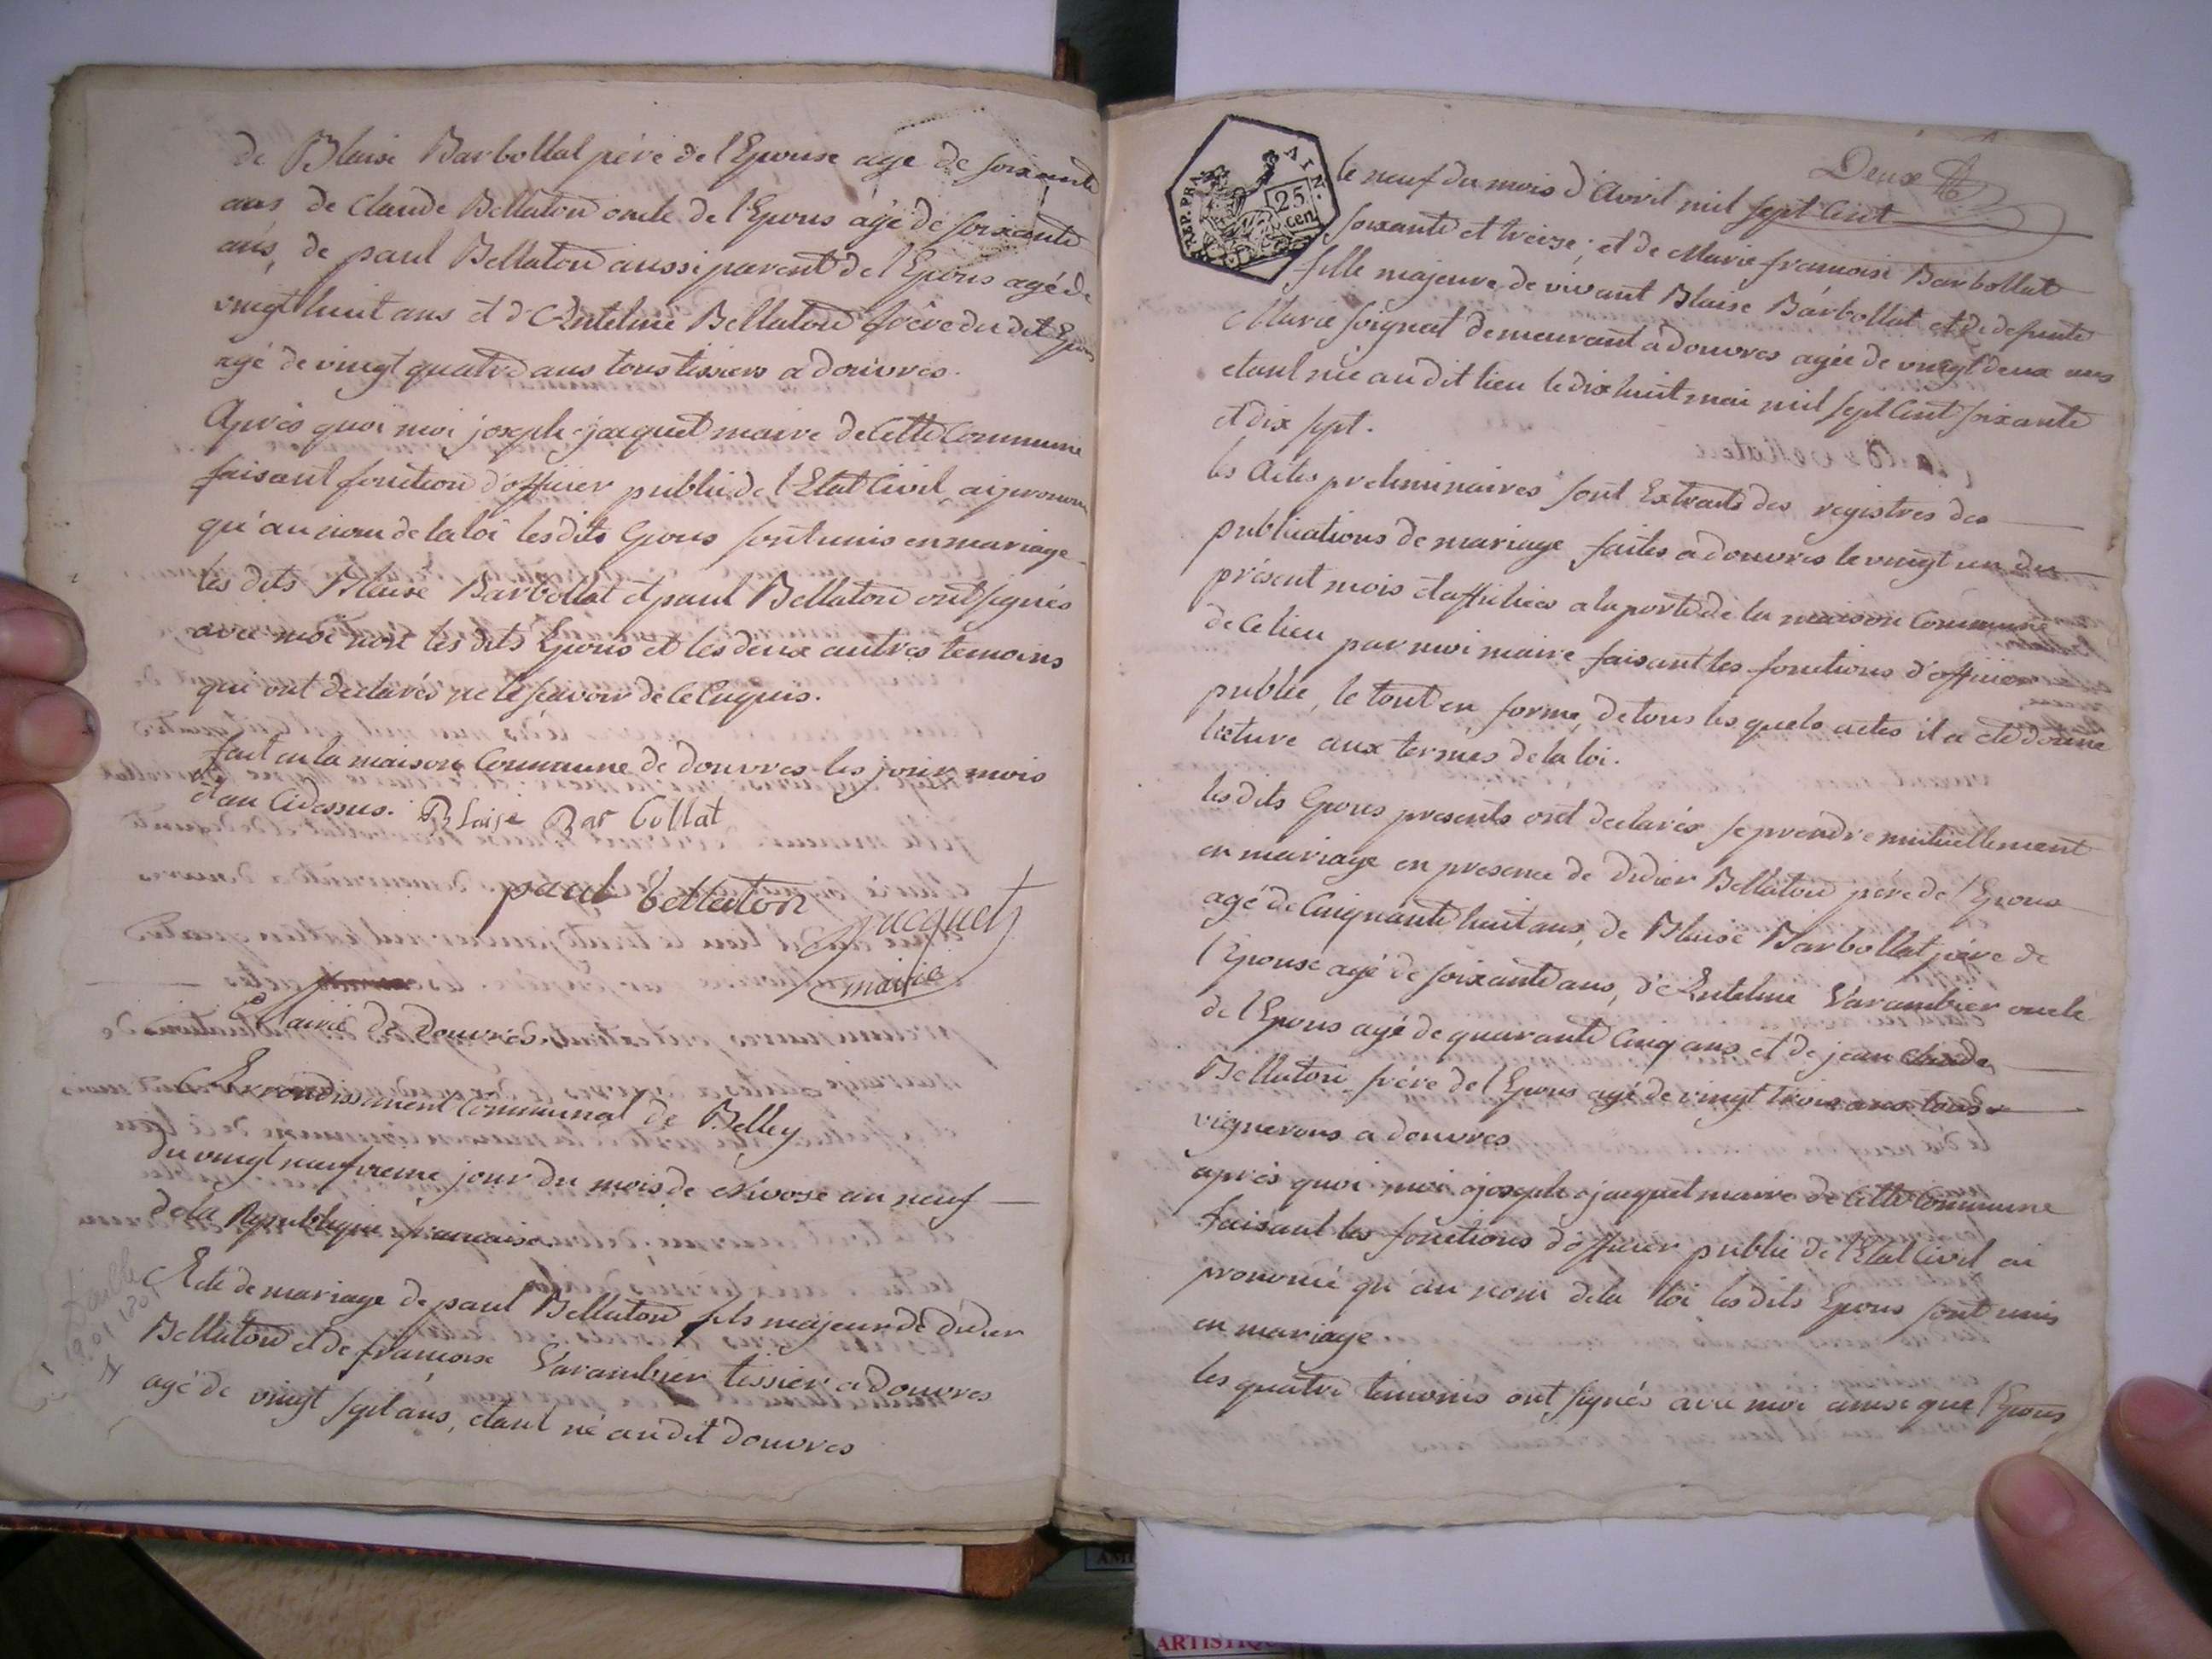 de Blaise Barbollat pére de l'Epouse age de soixante
ans de Claude Bellaton oncle de l'Epous agé de soixante
ans, de paul Bellaton aussi parent de l'Epous agé de
vingt huit ans et d'Antelme Bellaton frêre du dit Epous
agé de vingt quatre ans tous tissiers a douvres.
Après quoi moi joseph jacquet maire de Cette Commune
faisant fonction d'officier public de l'Etat Civil ai prononcé
qu'au nom de la loi les dits Epous sont unis en mariage
les dits Blaise Barbollat et paul Bellaton ont signés
avec moi non les dits Epous et les deux autres temoins
qui ont declarés ne le sçavoir de ce Enquis.
fait en la maison Commune de douvres les jour mois
et an Cidessus. BLaise Barbollat
paul bellaton
Jacquet
maire
Mairie de Douvres.
Arrondissement Communal de Belley
du vingt neufvieme jour du mois de Nivose an neuf
de la Republique francaise.
Acte de mariage de paul Bellaton fils majeur de didier
Bellaton et de francoise Varambier tissier a douvres
agé de vingt sept ans, etant né au dit douvres
19 01 1801
Deux
REP. FRA.
AIN.
25
Cen
le neuf du mois d'Avril mil sept Cent
soixante et treize; et de Marie francoise Barbollat
fille majeure de vivant Blaise Barbollat et de defunte
Marie soignat demeurant a douvres agée de vingt deux ans
etant née au dit lieu le dix huit mai mil sept Cent soixante
et dix sept.
les Actes preliminaires sont Extraits des registres des
publications de mariage faites a douvres le vingt un du
présent mois et affichées a la porte de la maison Commune
de Ce lieu par moi maire faisant les fonctions d'officier
public, le tout en forme, de tous les quels actes il a eté donné
lecture aux termes de la loi.
les dits Epous presents ont declarés se prendre mutuellement
en mariage en presence de didier Bellaton pére de l'Epous
agé de Cinquante huit ans, de Blaise Barbollat pére de
l'Epouse agé de soixante ans, d'Antelme Varambier oncle
de l'Epous agé de quarante Cinq ans et de jean claude
Bellaton frére de l'Epous agé de vingt trois ans tous
vignerons a douvres
après quoi moi joseph jacquet maire de Cette Commune
faisant les fonctions d'officier public de l'Etat Civil ai
prononcé qu'au nom de la loi les dits Epous sont unis
en mariage.
les quatre temoins ont signés avec moi ainsi que l'Epous
ARTISTIQU